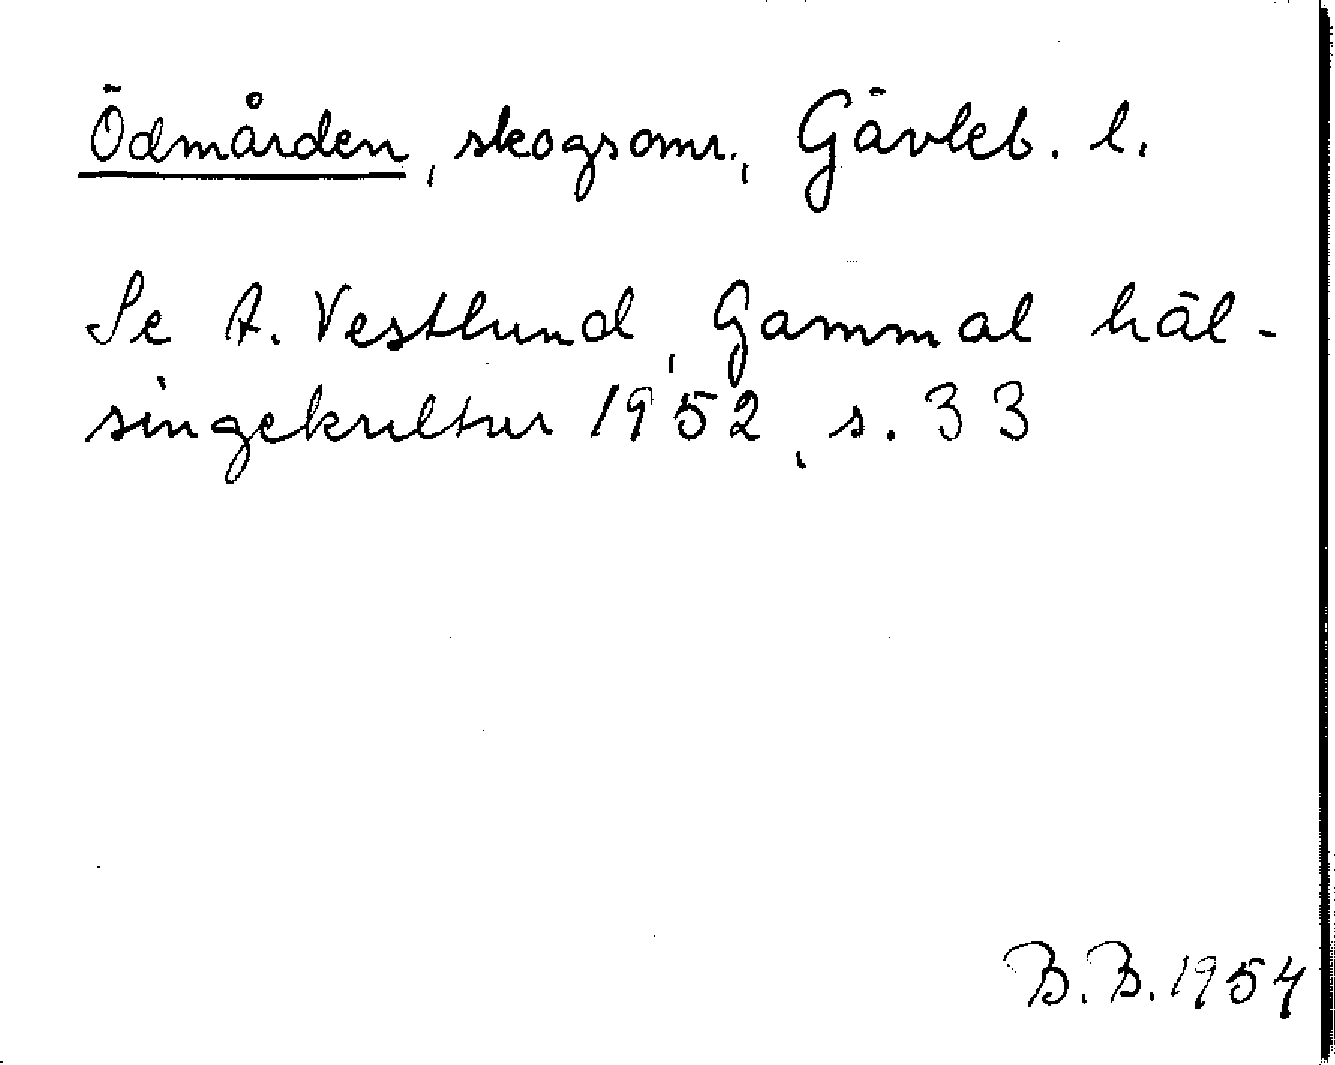 Ödmården, skogsomr., Gävleb. l.
Se A. Vestlund, Gammal häl-
singekultur 1952, s. 33
B.B. 1954